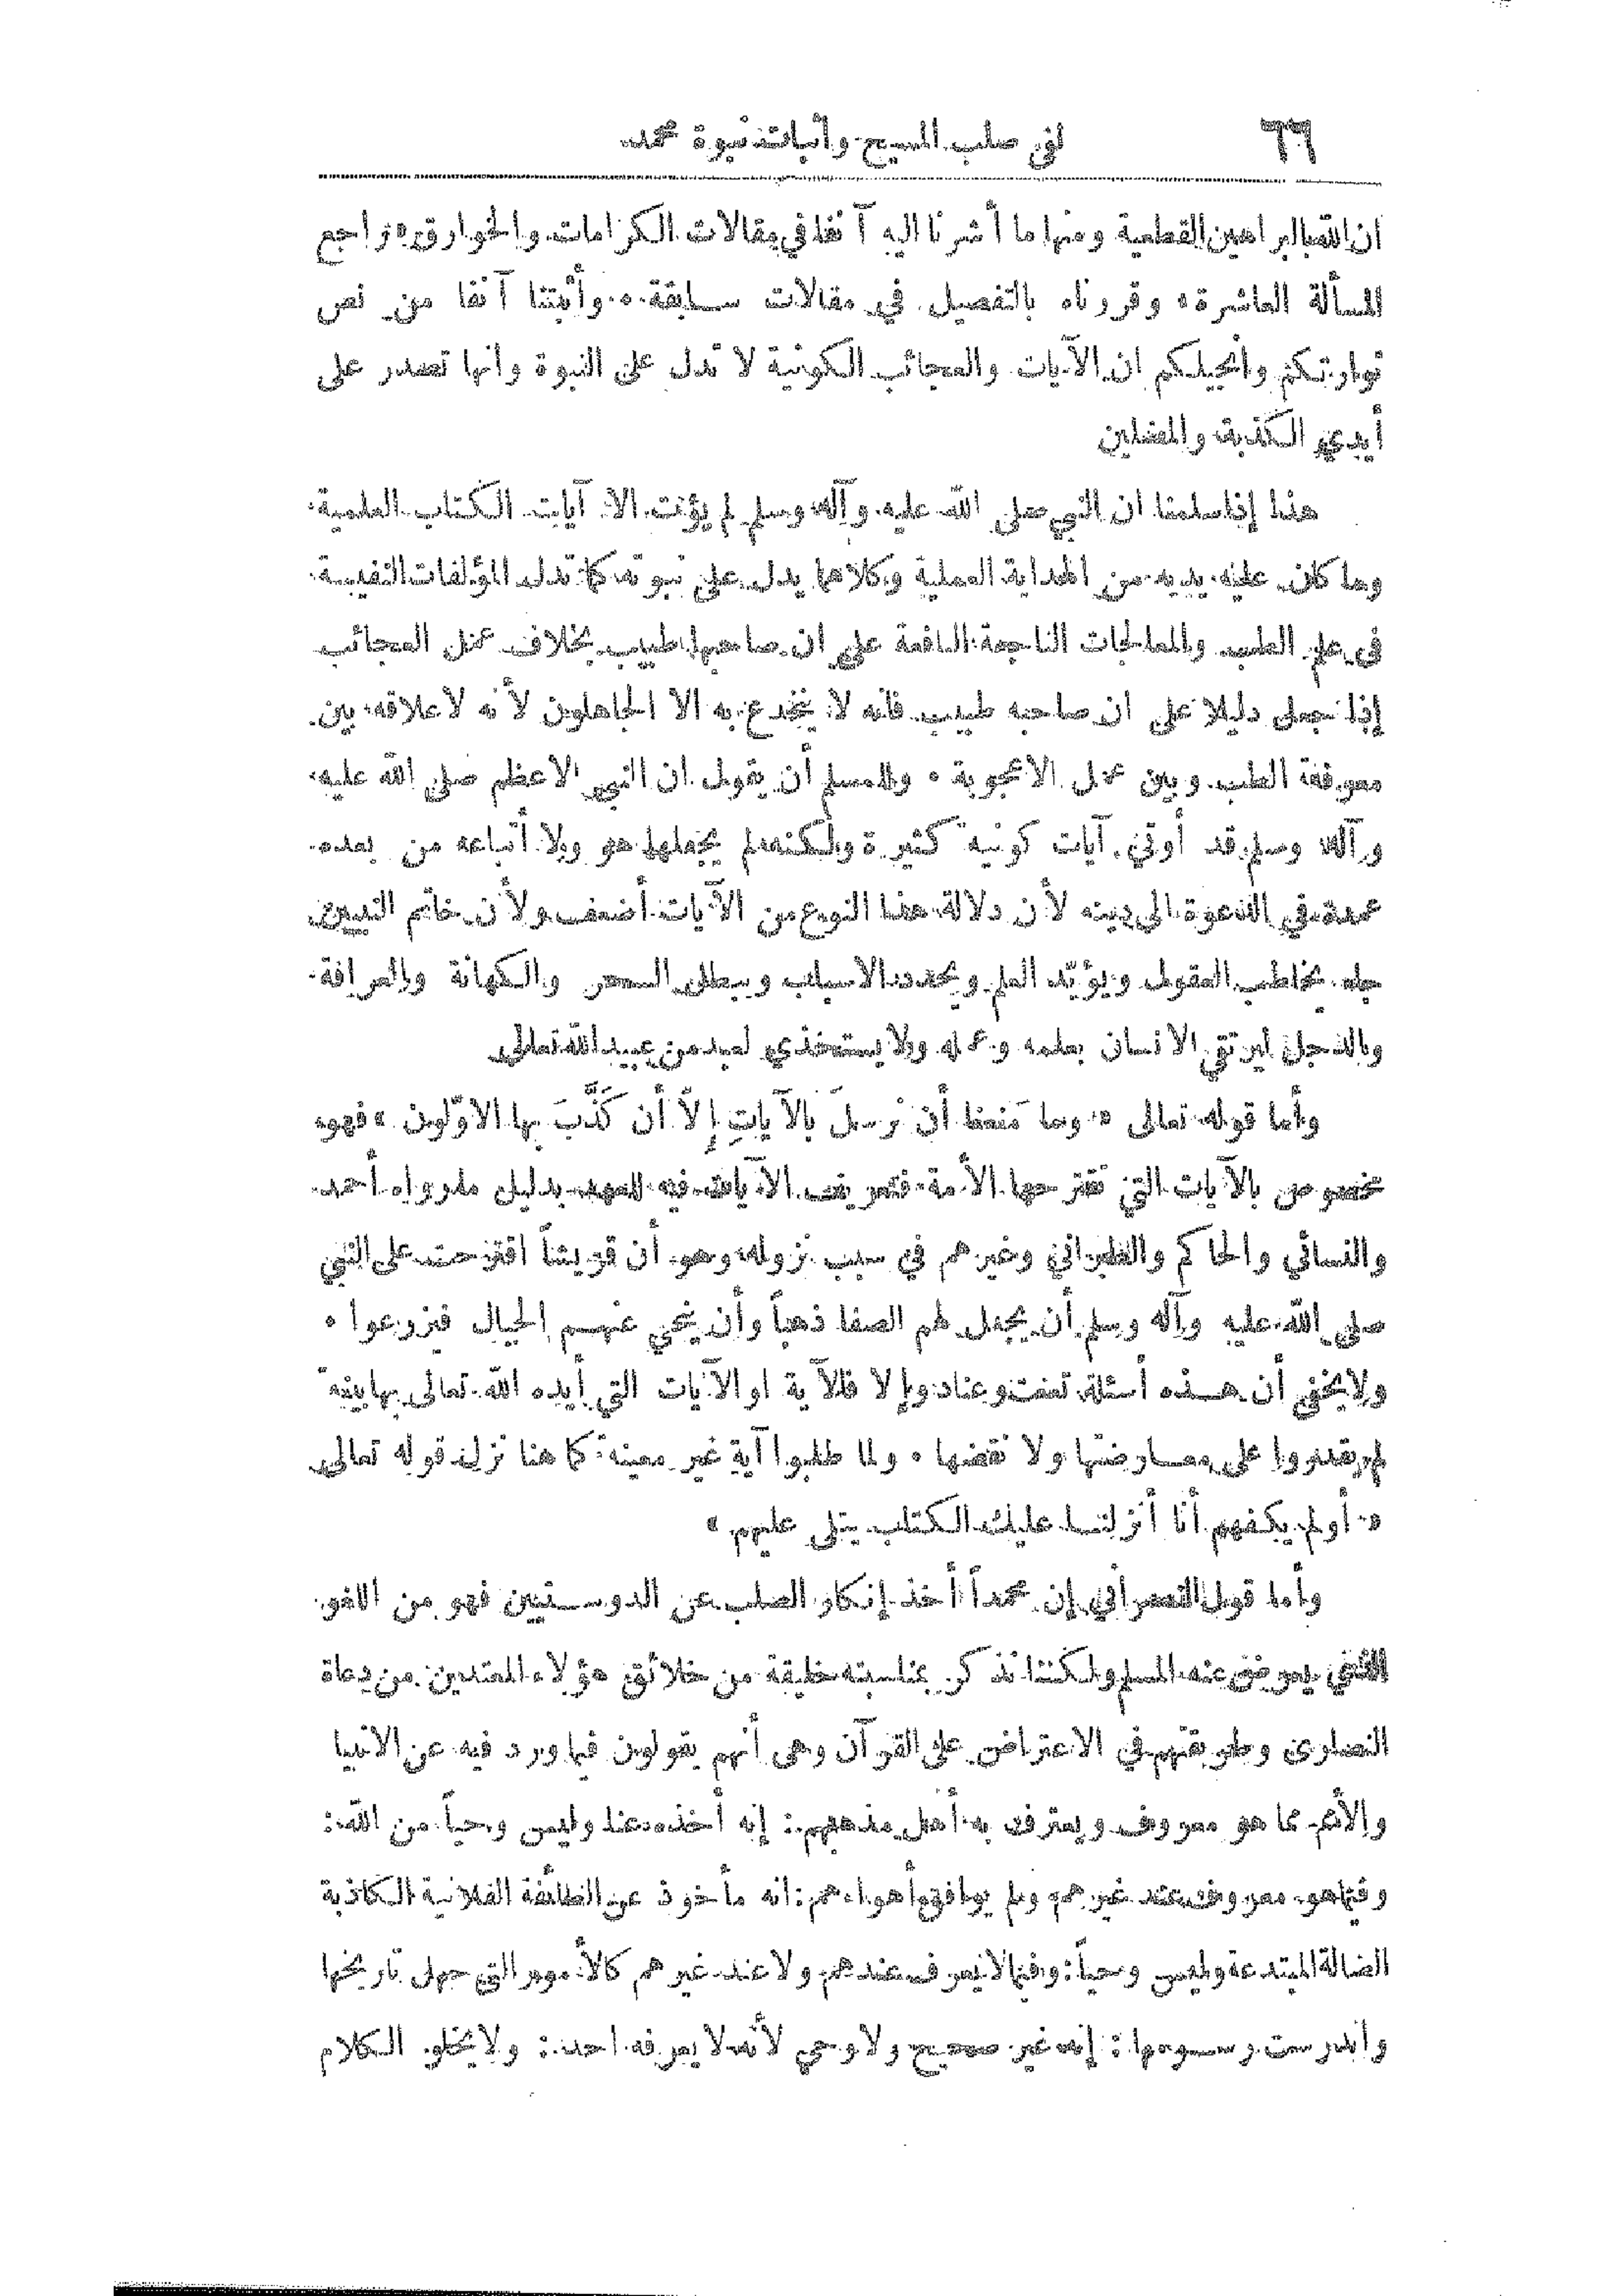 ٦٦ نفي صلب المسيح واثبات نبوة محمد
ان الله بالبراهين القطعية ومنها ما أشرنا اليه آنفا في مقالات الكرامات والخوارق « راجع
المسألة العاشرة » وقررناه بالتفصيل في مقالات سابقة . وأثبتنا آنفا من نص
توراتكم وانجيلكم ان الآيات والعجائب الكونية لا تدل على النبوة وانها تصدر على
أيدي الكذبة والمضلين
هذا إذا سلمنا ان النبي صلى الله عليه وآله وسلم لم يؤت الا آيات الكتاب العلمية
وما كان عليه يديه من الهداية العملية وكلاهما يدل على نبوته كما تدل المؤلفات النفيسة
في علم الطب والمعالجات الناجعة النافعة على ان صاحبها طبيب بخلاف عمل العجائب
إذا جعل دليلا على ان صاحبه طبيب فانه لا ينخدع به الا الجاهلون لأنه لا علاقه بين
معرفة الطب وبين عمل الاعجوبة . وللمسلم أن يقول ان النبي الاعظم صلى الله عليه
وآله وسلم قد أوتي آيات كونية كثيرة ولكنه لم يجعلها هو ولا أتباعه من بعده
عمدة في الدعوة الى دينه لأن دلالة هذا النوع من الآيات أضعف ولأن خاتم النبيين
جاء يخاطب العقول ويؤيّد العلم ويحدد الاسباب ويبطل السحر والكهانة والعرافة
والدجل ليرتقي الانسان بعلمه وعمله ولا يستخذي لعبد من عبيد الله تعالى
وأما قوله تعالى « وما مَنعنا أن نُرسلَ بالآياتِ إلاّ أن كذَّبَ بها الاوّلون » فهو
مخصوص بالآيات التي تقترحها الأمة فتعريف الآيات فيه للعهد بدليل ما رواه أحمد
والنسائي والحاكم والطبراني وغيرهم في سبب نزوله وهو أن قريشاً اقترحت على النبي
صلى الله عليه وآله وسلم أن يجعل لهم الصفا ذهباً وأن ينحي عنهم الجبال فيزرعوا .
ولا يخفى أن هذه أسئلة تعنت وعناد وإلا فالآية او الآيات التي أيده الله تعالى بها بينة
لم يقدروا على معارضتها ولا نقضها . ولما طلبوا آية غير معينة كما هنا نزل قوله تعالى
« أولم يكفهم أنا أنزلنا عليك الكتاب يتلى عليهم »
وأما قول النصراني إن محمداً أخذ إنكار الصلب عن الدوسيتيين فهو من اللغو
الذي يعرض عنه المسلم ولكننا نذكر بمناسبته خليقة من خلائق هؤلاء المعتدين من دعاة
النصارى وطريقتهم في الاعتراض على القرآن وهي أنهم يقولون فيما ورد فيه عن الانبيا
والأمم مما هو معروف ويعترف به أهل مذهبهم : إنه أخذه عنا وليس وحياً من الله :
وفيما هو معروف عند غيرهم ولم يوافق أهواءهم : انه مأخوذ عن الطائفة الفلانية الكاذبة
الضالة المبتدعة وليس وحياً : وفيما لا يعرف عندهم ولا عند غيرهم كالأمور التي جهل تاريخها
واندرست رسومها : إنه غير صحيح ولا وحي لأنه لا يعرفه احد : ولا يخلو الكلام